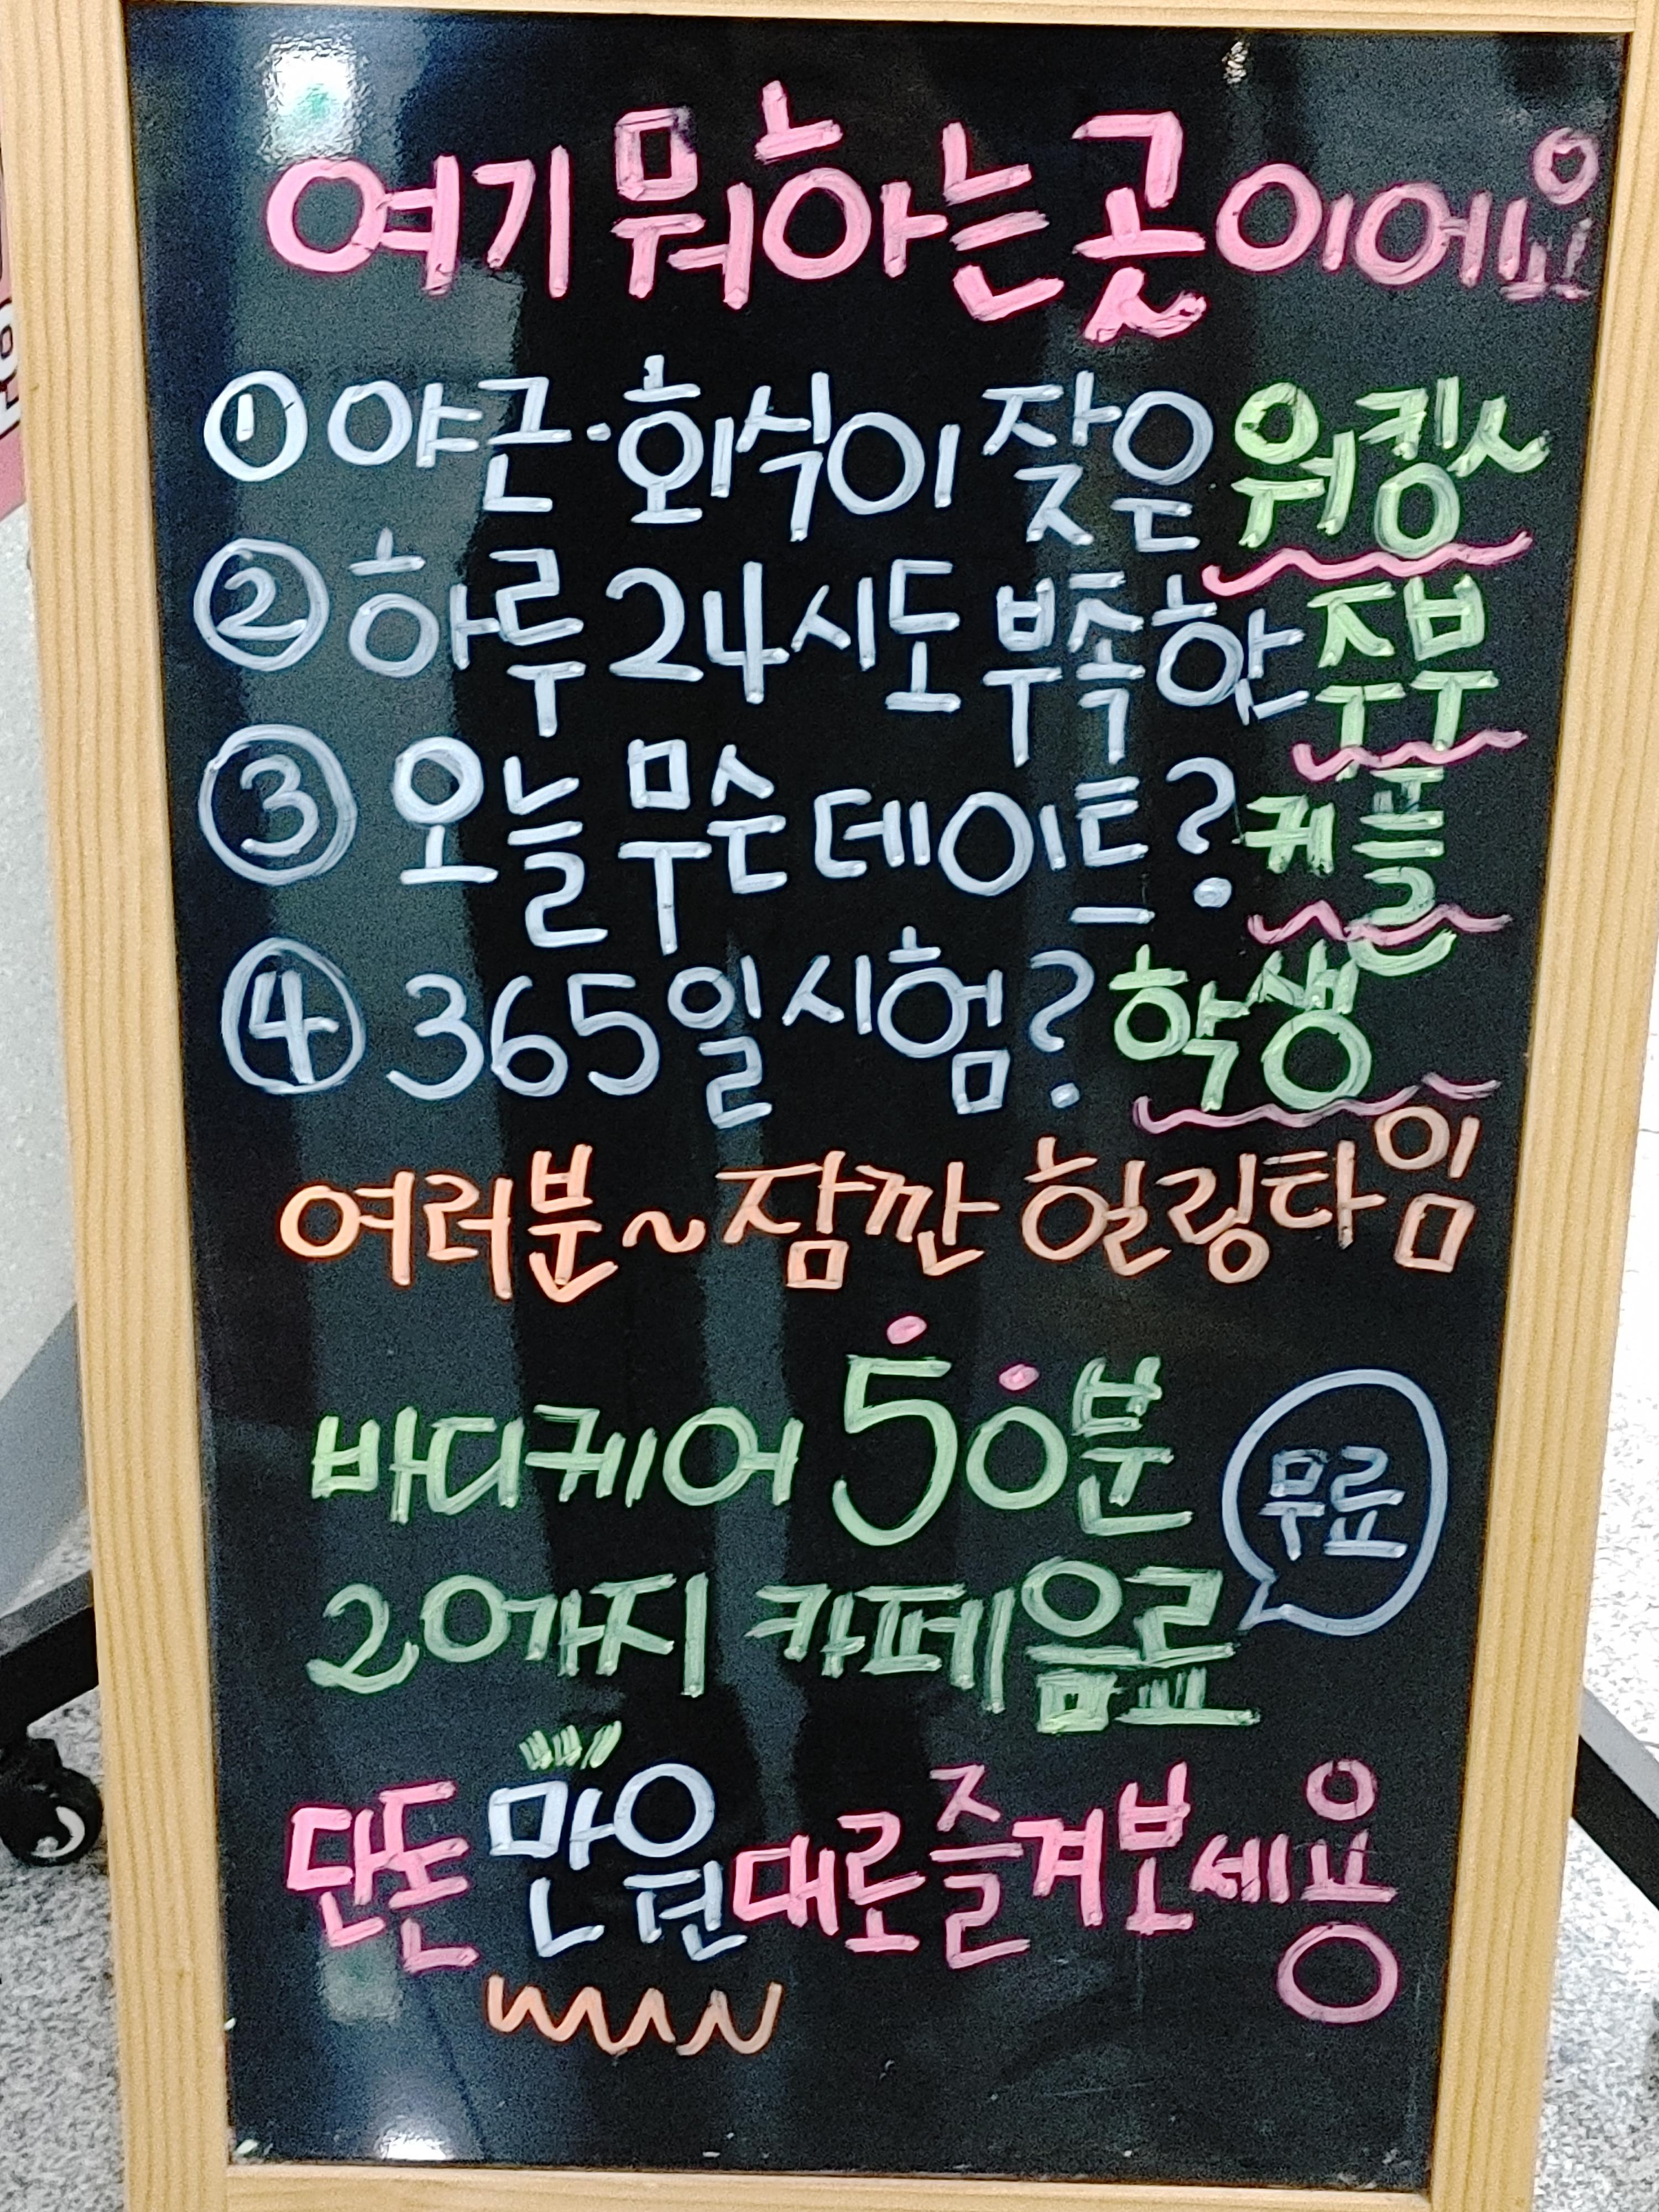 여기 뭐하는 곳이에요!
① 야근·회식이 잦은 워킹人
② 하루 24시도 부족한 주부
③ 오늘 무슨 데이트? 커플
④ 365일 시험? 학생
여러분~ 잠깐 힐링타임
바디케어 50분
무료
20가지 카페음료
단돈 만원대로 즐겨보세요